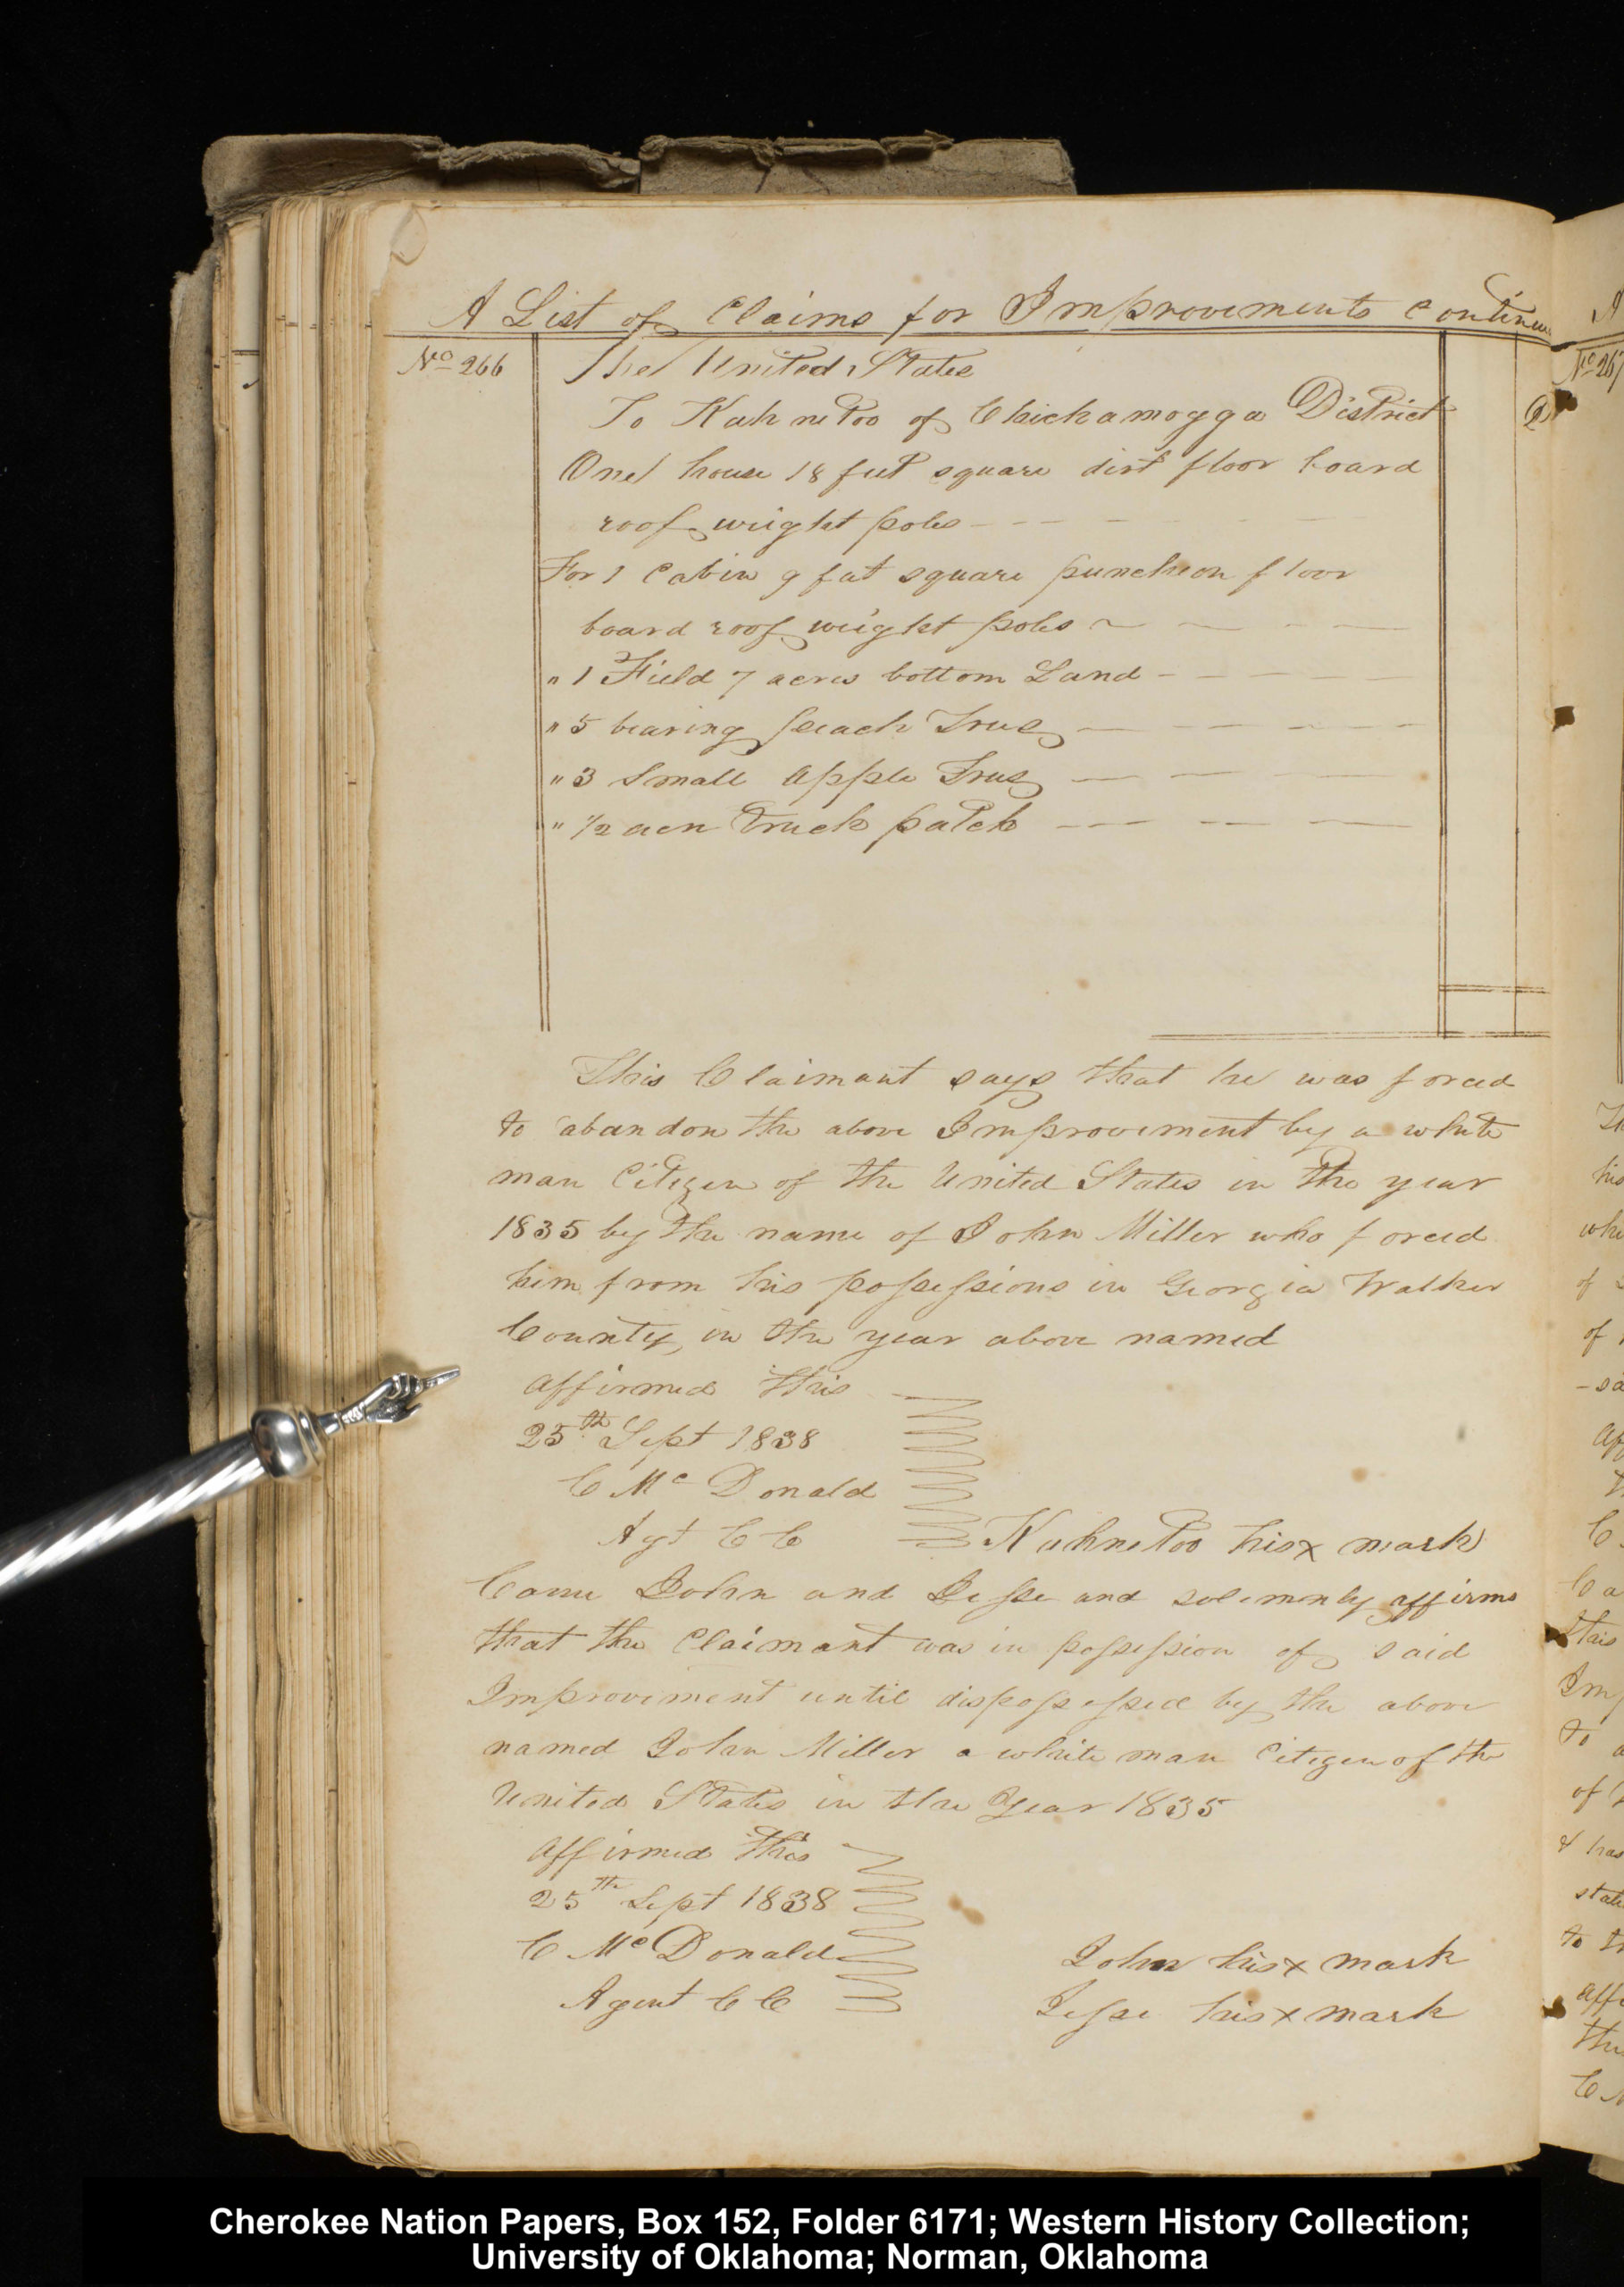 A List of Claims for Improvements Continue
No 266
The United States
To Kah ne too of Chickamogga District
One house 18 feet square dirt floor board
roof weight poles
For 1 Cabin 9 feet square puncheon floor
board roof weight poles
" 1 Field 7 acres bottom Land
" 5 bearing peach Trees
" 3 Small apple Trees
" 1/2 acre Truck patch
This Claimant says that he was forced
to abandon the above Improvement by a white
man Citizen of the United States in the year
1835 by the name of John Miller who forced
him from his possessions in Georgia Walker
County in the year above named
affirmed this
25th Sept 1838
C Mc Donald
Agt C C
Kahnetoo his x mark
Came John and Jesse and solemnly affirms
that the Claimant was in possession of said
Improvement until dispossessed by the above
named John Miller a white man Citizen of the
United States in the Year 1835
affirmed this
25th Sept 1838
C Mc Donald
Agent C C
John his x mark
Jesse his x mark
No 267
his
of
of
this
to
of
& has
Cherokee Nation Papers, Box 152, Folder 6171; Western History Collection;
University of Oklahoma; Norman, Oklahoma